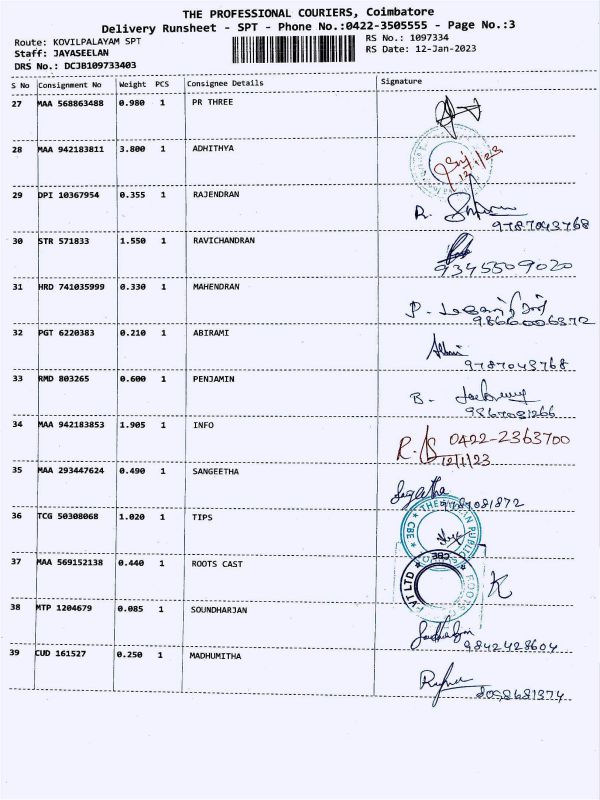 THE PROFESSIONAL COURIERS, Coimbatore
Delivery Runsheet - SPT - Phone No.:0422-3505555 - Page No.:3
Route: KOVILPALAYAM SPT
Staff: JAYASEELAN
DRS No.: DCJB109733403
RS No.: 1097334
RS Date: 12-Jan-2023
S No Consignment No Weight PCS Consignee Details Signature
27 MAA 568863488 0.980 1 PR THREE
28 MAA 942183811 3.800 1 ADHITHYA
12/1/23
29 DPI 10367954 0.355 1 RAJENDRAN
R.
9787043768
30 STR 571833 1.550 1 RAVICHANDRAN
9345509020
31 HRD 741035999 0.330 1 MAHENDRAN
P.
9866006372
32 PGT 6220383 0.210 1 ABIRAMI
9787043768
33 RMD 803265 0.600 1 PENJAMIN
B.
9867081266
34 MAA 942183853 1.905 1 INFO
0422-2363700
12/1/23
35 MAA 293447624 0.490 1 SANGEETHA
9787081872
36 TCG 50308068 1.020 1 TIPS
CBE
37 MAA 569152138 0.440 1 ROOTS CAST
38 MTP 1204679 0.085 1 SOUNDHARJAN
9842428604
39 CUD 161527 0.250 1 MADHUMITHA
8098681374